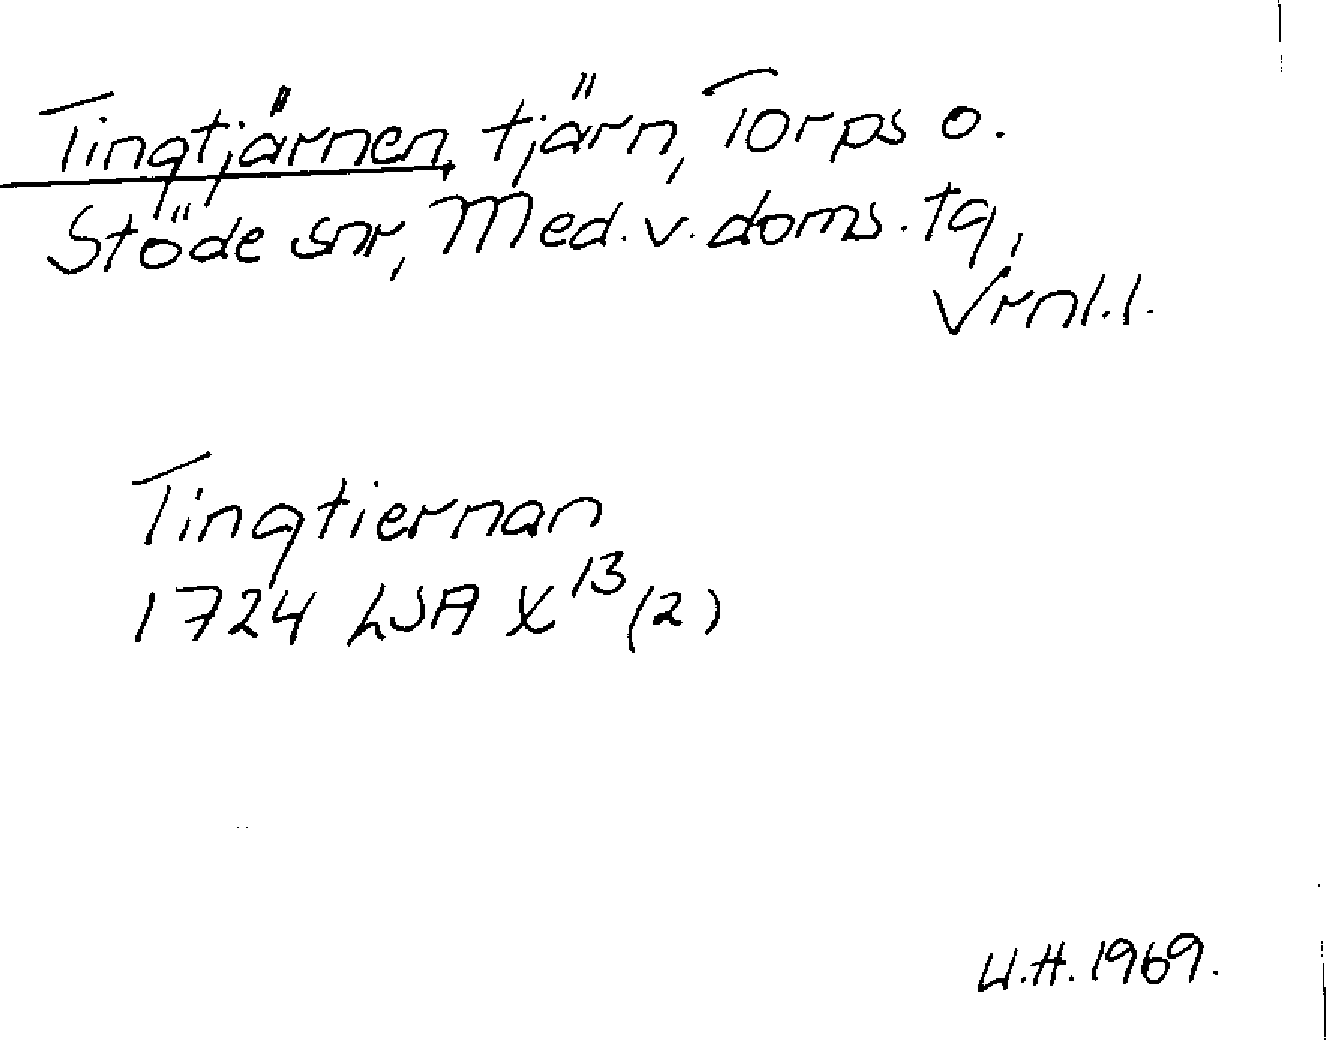 Tingtjärnen, tjärn, Torps o.
Stöde snr, Med. v. doms. tg,
Vrnl.l.
Tingtiernan
1724 LSA X13(2)
U.H. 1969.